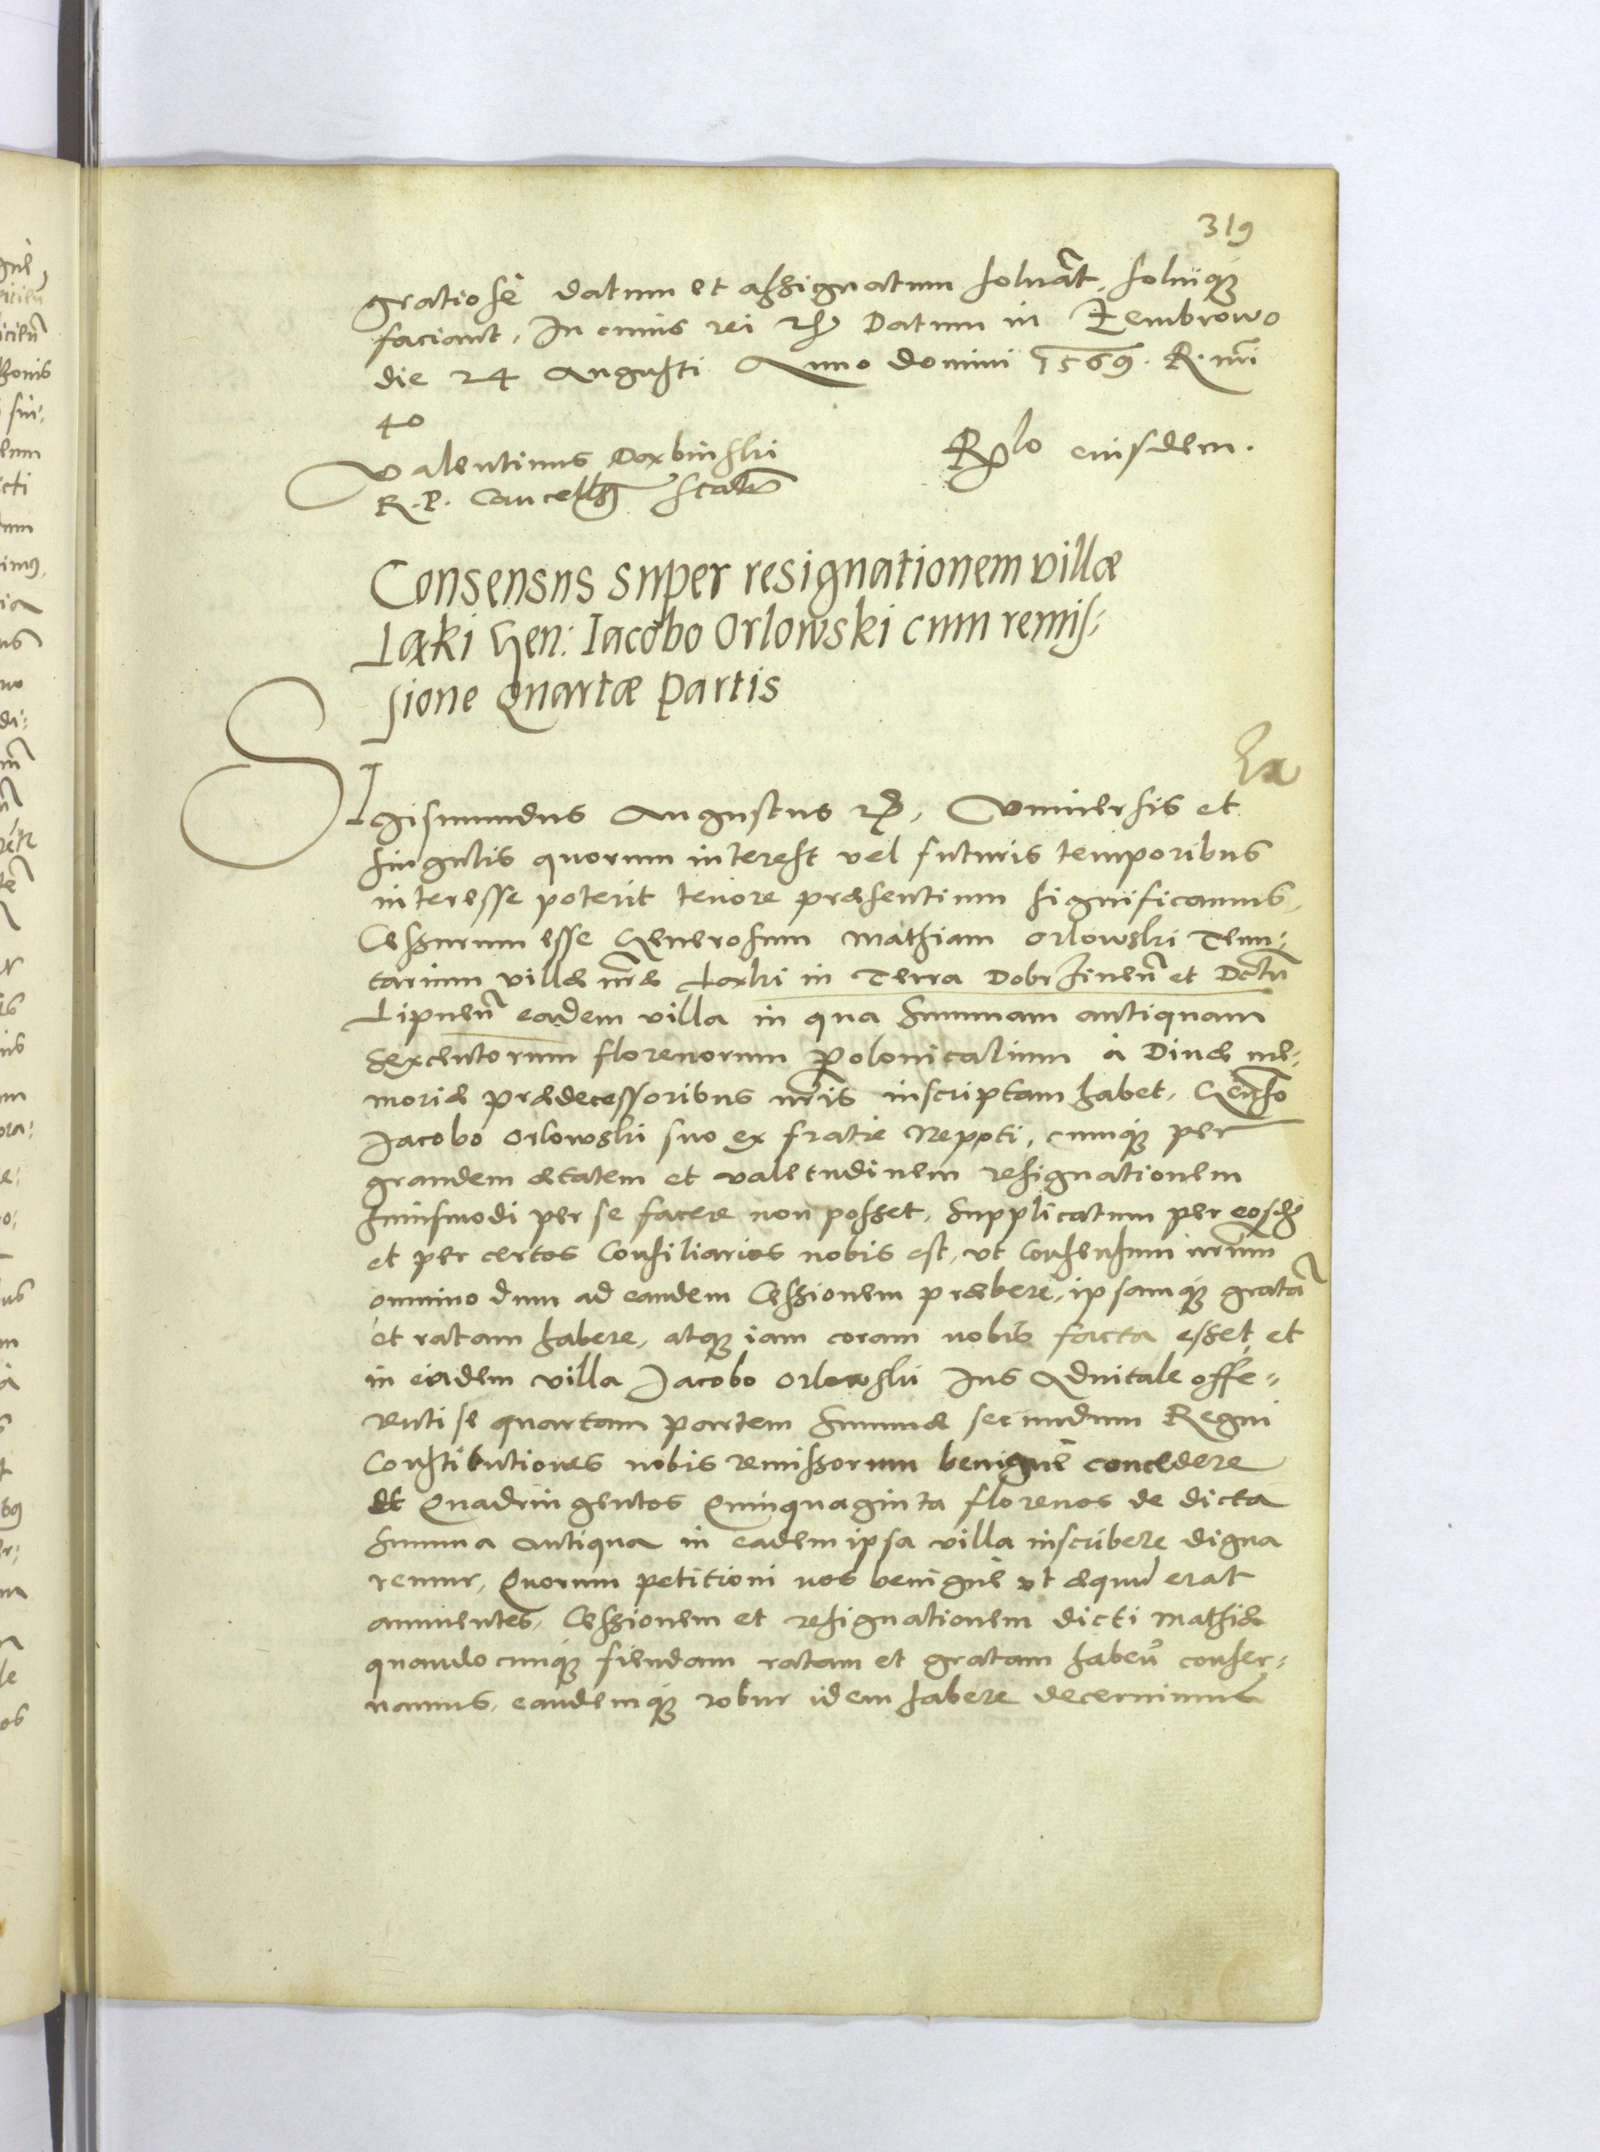 319
gratiosè datum et assignatum soluãt, soluiq3
faciant. In cuius rei &c. Datum in Zembrowo
die 24 Augusti Anno domini 1569. R. nri
40
Valentinus Dąxbinski
R. P. Cancells
Rlo eiusdem.
Consensus super resignationem villæ
Łąki Gen: Iacobo Orlowski cum remis-
sione Quartæ Partis
SIgismundus Augustus &c. Vniuersis et
singulis quorum interest vel futuris temporibus
interesse poterit tenore præsentium significamus,
Cessurum esse Generosum Mathiam Orlowski Tenu-
tarium villæ nræ Łąki in Terra Dobrzineñ et Dctu
Lipneñ eadem villa in qua Summam antiquam
Sexcentorum florenorum Polonicalium à Diuæ me-
moriæ prædecessoribus nris inscriptam habet, Geñso
Jacobo Orlowski suo ex fratre Nepoti, cumq3 per
grandem ætatem et valetudinem resignationem
huiusmodi per se facere non posset, Supplicatum per eosd
et per certos Consiliarios nobis est, vt Consensum nrum
omnino dum ad eandem Cessionem præbere, ipsamq3 gratã
et ratam habere, atq3 iam coram nobis facta esset, et
in eadem villa Jacobo Orlowski Ius Aduitale offe-
renti se quartam partem Summæ secundum Regni
Constitutiones nobis remissorum benignè concedere
et Quadringentos Quinquaginta florenos de dicta
Summa antiqua in eadem ipsa villa inscribere digna
remur, Quorum petitioni nos benignè vt æquũ erat
annuentes, Cessionem et resignationem dicti Mathiæ
quandocunq3 fiendam ratam et gratam habeñ conser-
uamus, eandemq3 robur idem habere decernimus